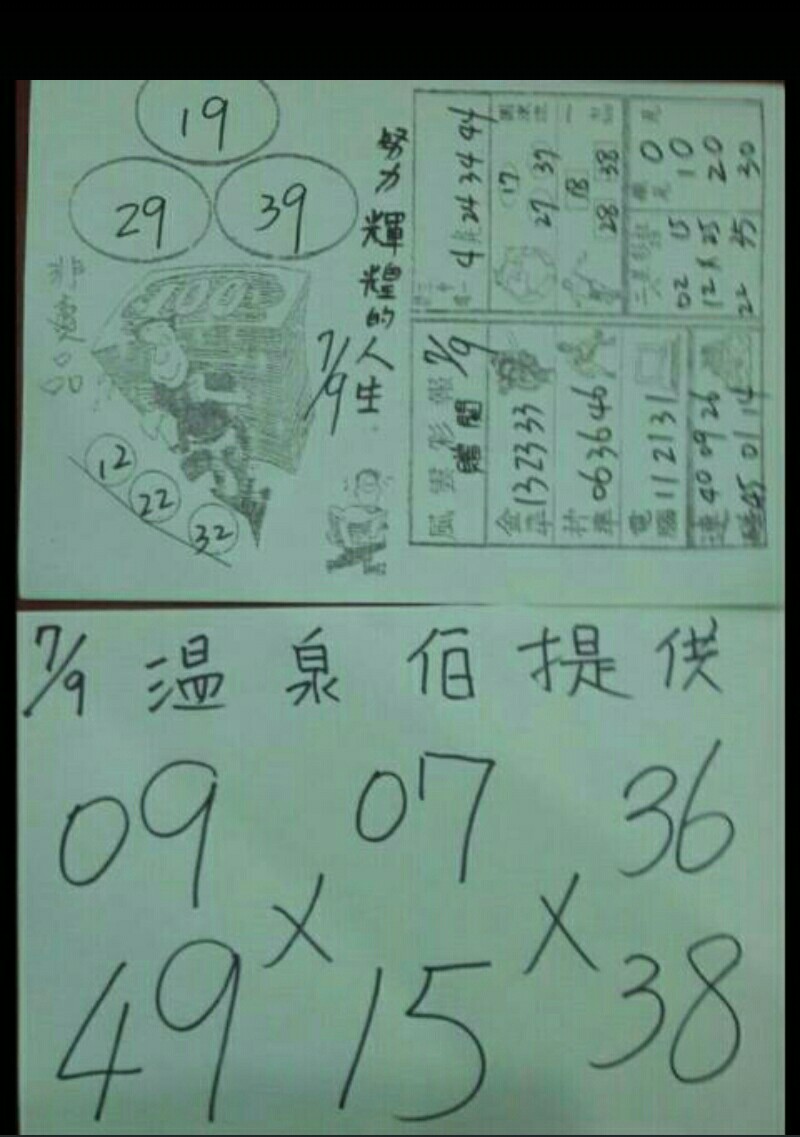 19
29 39
努力輝煌的人生
7/9
12
22
32
4 尾 24 34 44
17 37
27
18 38
28
0
10
20
30
02 15
12 25
22 45
風雲彩報 7/9
贈閱
金 13 23 33
06 36 46
電腦 11 21 31
連 40 09 26
45 01 14
7/9 溫泉伯提供
09 07 36
× ×
49 15 38